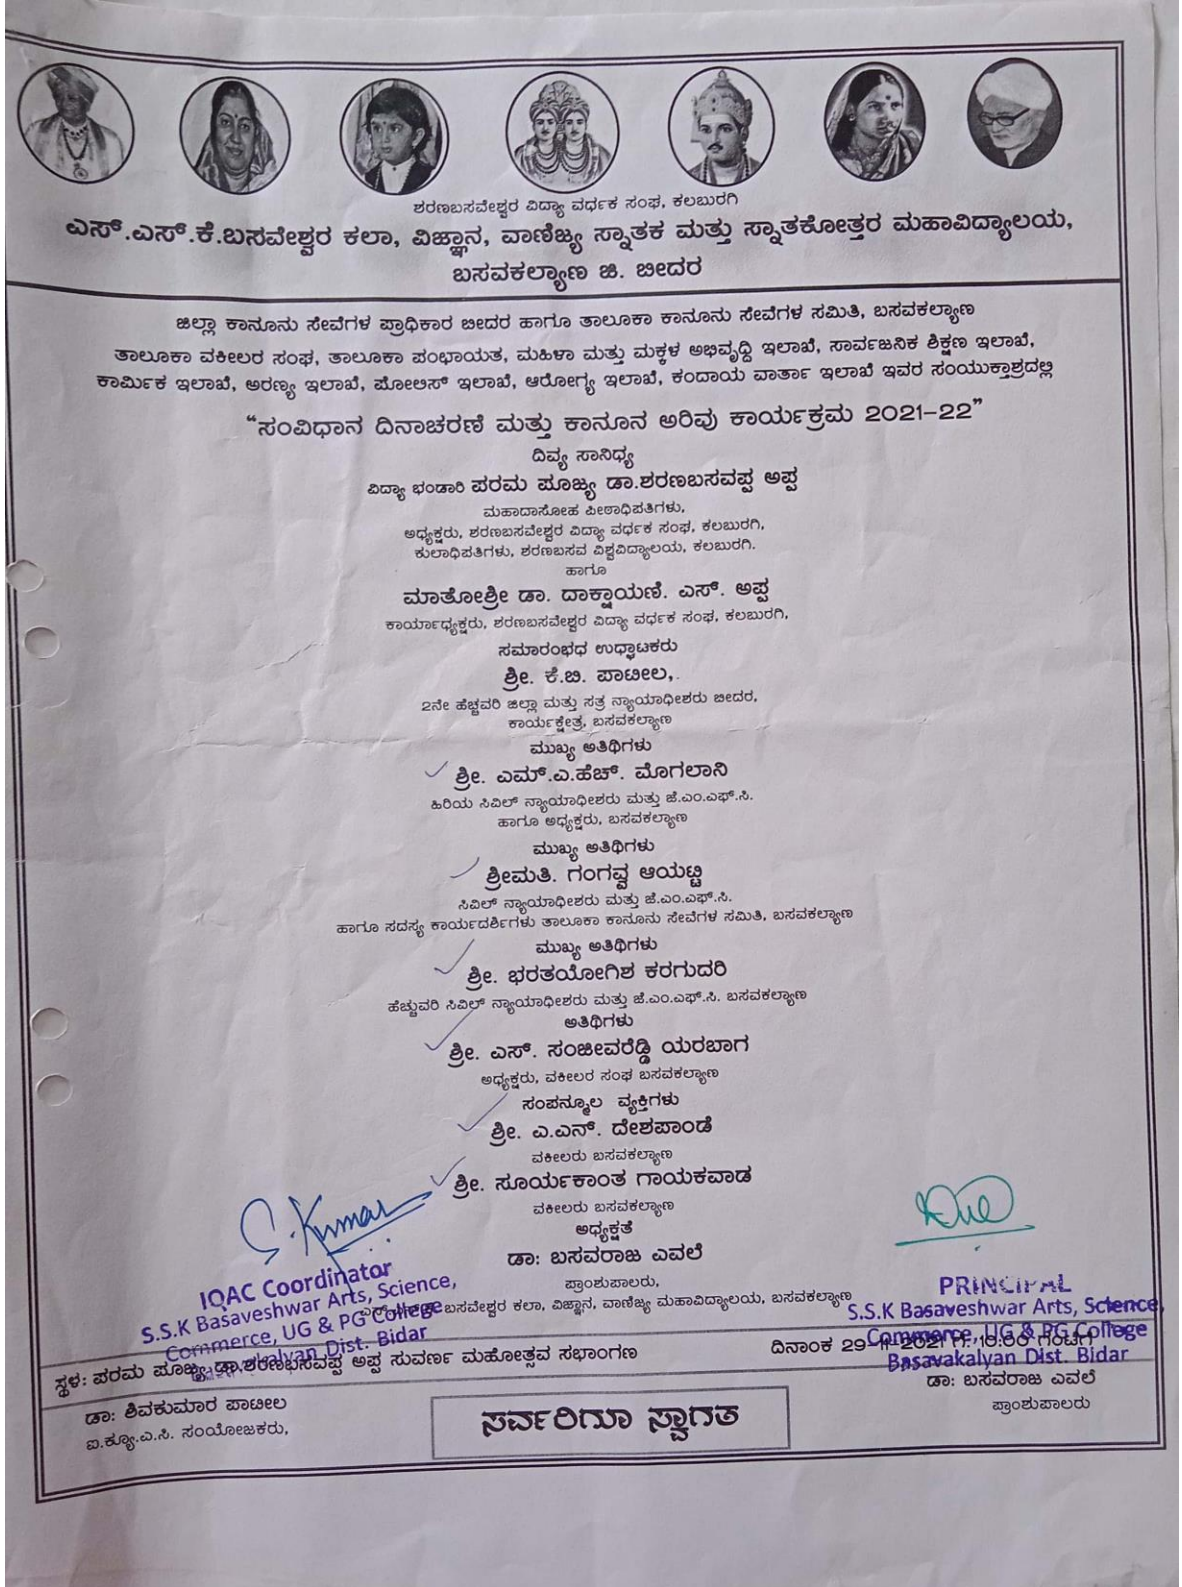 ಶರಣಬಸವೇಶ್ವರ ವಿದ್ಯಾ ವರ್ಧಕ ಸಂಘ, ಕಲಬುರಗಿ
ಎಸ್.ಎಸ್.ಕೆ.ಬಸವೇಶ್ವರ ಕಲಾ, ವಿಜ್ಞಾನ, ವಾಣಿಜ್ಯ ಸ್ನಾತಕ ಮತ್ತು ಸ್ನಾತಕೋತ್ತರ ಮಹಾವಿದ್ಯಾಲಯ,
ಬಸವಕಲ್ಯಾಣ ಜಿ. ಬೀದರ
ಜಿಲ್ಲಾ ಕಾನೂನು ಸೇವೆಗಳ ಪ್ರಾಧಿಕಾರ ಬೀದರ ಹಾಗೂ ತಾಲೂಕಾ ಕಾನೂನು ಸೇವೆಗಳ ಸಮಿತಿ, ಬಸವಕಲ್ಯಾಣ
ತಾಲೂಕಾ ವಕೀಲರ ಸಂಘ, ತಾಲೂಕಾ ಪಂಛಾಯತ, ಮಹಿಳಾ ಮತ್ತು ಮಕ್ಕಳ ಅಭಿವೃದ್ಧಿ ಇಲಾಖೆ, ಸಾರ್ವಜನಿಕ ಶಿಕ್ಷಣ ಇಲಾಖೆ,
ಕಾರ್ಮಿಕ ಇಲಾಖೆ, ಅರಣ್ಯ ಇಲಾಖೆ, ಪೋಲಿಸ್ ಇಲಾಖೆ, ಆರೋಗ್ಯ ಇಲಾಖೆ, ಕಂದಾಯ ವಾರ್ತಾ ಇಲಾಖೆ ಇವರ ಸಂಯುಕ್ತಾಶ್ರದಲ್ಲಿ
“ಸಂವಿಧಾನ ದಿನಾಚರಣೆ ಮತ್ತು ಕಾನೂನ ಅರಿವು ಕಾರ್ಯಕ್ರಮ 2021-22”
ದಿವ್ಯ ಸಾನಿಧ್ಯ
ವಿದ್ಯಾ ಭಂಡಾರಿ ಪರಮ ಪೂಜ್ಯ ಡಾ.ಶರಣಬಸವಪ್ಪ ಅಪ್ಪ
ಮಹಾದಾಸೋಹ ಪೀಠಾಧಿಪತಿಗಳು,
ಅಧ್ಯಕ್ಷರು, ಶರಣಬಸವೇಶ್ವರ ವಿದ್ಯಾ ವರ್ಧಕ ಸಂಘ, ಕಲಬುರಗಿ,
ಕುಲಾಧಿಪತಿಗಳು, ಶರಣಬಸವ ವಿಶ್ವವಿದ್ಯಾಲಯ, ಕಲಬುರಗಿ.
ಹಾಗೂ
ಮಾತೋಶ್ರೀ ಡಾ. ದಾಕ್ಷಾಯಣಿ. ಎಸ್. ಅಪ್ಪ
ಕಾರ್ಯಾಧ್ಯಕ್ಷರು, ಶರಣಬಸವೇಶ್ವರ ವಿದ್ಯಾ ವರ್ಧಕ ಸಂಘ, ಕಲಬುರಗಿ,
ಸಮಾರಂಭಧ ಉಧ್ಘಾಟಕರು
ಶ್ರೀ. ಕೆ.ಬಿ. ಪಾಟೀಲ,.
2ನೇ ಹೆಚ್ಚವರಿ ಜಿಲ್ಲಾ ಮತ್ತು ಸತ್ರ ನ್ಯಾಯಾಧೀಶರು ಬೀದರ,
ಕಾರ್ಯಕ್ಷೇತ್ರ, ಬಸವಕಲ್ಯಾಣ
ಮುಖ್ಯ ಅತಿಥಿಗಳು
ಶ್ರೀ. ಎಮ್.ಎ.ಹೆಚ್. ಮೊಗಲಾನಿ
ಹಿರಿಯ ಸಿವಿಲ್ ನ್ಯಾಯಾಧೀಶರು ಮತ್ತು ಜೆ.ಎಂ.ಎಫ್.ಸಿ.
ಹಾಗೂ ಅಧ್ಯಕ್ಷರು, ಬಸವಕಲ್ಯಾಣ
ಮುಖ್ಯ ಅತಿಥಿಗಳು
ಶ್ರೀಮತಿ. ಗಂಗವ್ವ ಆಯಟ್ಟಿ
ಸಿವಿಲ್ ನ್ಯಾಯಾಧೀಶರು ಮತ್ತು ಜೆ.ಎಂ.ಎಫ್.ಸಿ.
ಹಾಗೂ ಸದಸ್ಯ ಕಾರ್ಯದರ್ಶಿಗಳು ತಾಲೂಕಾ ಕಾನೂನು ಸೇವೆಗಳ ಸಮಿತಿ, ಬಸವಕಲ್ಯಾಣ
ಮುಖ್ಯ ಅತಿಥಿಗಳು
ಶ್ರೀ. ಭರತಯೋಗಿಶ ಕರಗುದರಿ
ಹೆಚ್ಚುವರಿ ಸಿವಿಲ್ ನ್ಯಾಯಾಧೀಶರು ಮತ್ತು ಜೆ.ಎಂ.ಎಫ್.ಸಿ. ಬಸವಕಲ್ಯಾಣ
ಅತಿಥಿಗಳು
ಶ್ರೀ. ಎಸ್. ಸಂಜೀವರೆಡ್ಡಿ ಯರಬಾಗ
ಅಧ್ಯಕ್ಷರು, ವಕೀಲರ ಸಂಘ ಬಸವಕಲ್ಯಾಣ
ಸಂಪನ್ಮೂಲ ವ್ಯಕ್ತಿಗಳು
ಶ್ರೀ. ಎ.ಎನ್. ದೇಶಪಾಂಡೆ
ವಕೀಲರು ಬಸವಕಲ್ಯಾಣ
ಶ್ರೀ. ಸೂರ್ಯಕಾಂತ ಗಾಯಕವಾಡ
ವಕೀಲರು ಬಸವಕಲ್ಯಾಣ
ಅಧ್ಯಕ್ಷತೆ
ಡಾ: ಬಸವರಾಜ ಎವಲೆ
ಪ್ರಾಂಶುಪಾಲರು,
ಬಸವೇಶ್ವರ ಕಲಾ, ವಿಜ್ಞಾನ, ವಾಣಿಜ್ಯ ಮಹಾವಿದ್ಯಾಲಯ, ಬಸವಕಲ್ಯಾಣ
S. Kumar
IQAC Coordinator
S.S.K Basaveshwar Arts, Science,
Commerce, UG & PG College
Basavakalyan Dist. Bidar
PRINCIPAL
S.S.K Basaveshwar Arts, Science
Commerce, UG & PG College
Basavakalyan Dist. Bidar
ಸ್ಥಳ: ಪರಮ ಪೂಜ್ಯ ಡಾ.ಶರಣಬಸವಪ್ಪ ಅಪ್ಪ ಸುವರ್ಣ ಮಹೋತ್ಸವ ಸಭಾಂಗಣ
ದಿನಾಂಕ 29-11-2021
ಡಾ: ಶಿವಕುಮಾರ ಪಾಟೀಲ
ಐ.ಕ್ಯೂ.ಎ.ಸಿ. ಸಂಯೋಜಕರು,
ಸರ್ವರಿಗೂ ಸ್ವಾಗತ
ಡಾ: ಬಸವರಾಜ ಎವಲೆ
ಪ್ರಾಂಶುಪಾಲರು